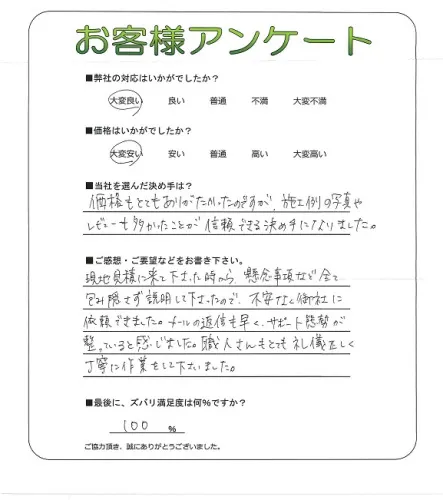 お客様アンケート
■弊社の対応はいかがでしたか?
大変良い 良い 普通 不満 大変不満
■価格はいかがでしたか?
大変安い 安い 普通 高い 大変高い
■当社を選んだ決め手は?
価格もとてもありがたかったのですが、施工例の写真や
レビューも多かったことが信頼できる決め手になりました。
■ご感想・ご要望などをお書き下さい。
現地見積に来て下さった時から、懸念事項など全て
包み隠さず説明して下さったので、不安なく御社に
依頼できました。メールの返信も早く、サポート態勢が
整っていると感じました。職人さんもとても礼儀正しく
丁寧に作業をして下さいました。
■最後に、ズバリ満足度は何%ですか?
100 %
ご協力頂き、誠にありがとうございました。